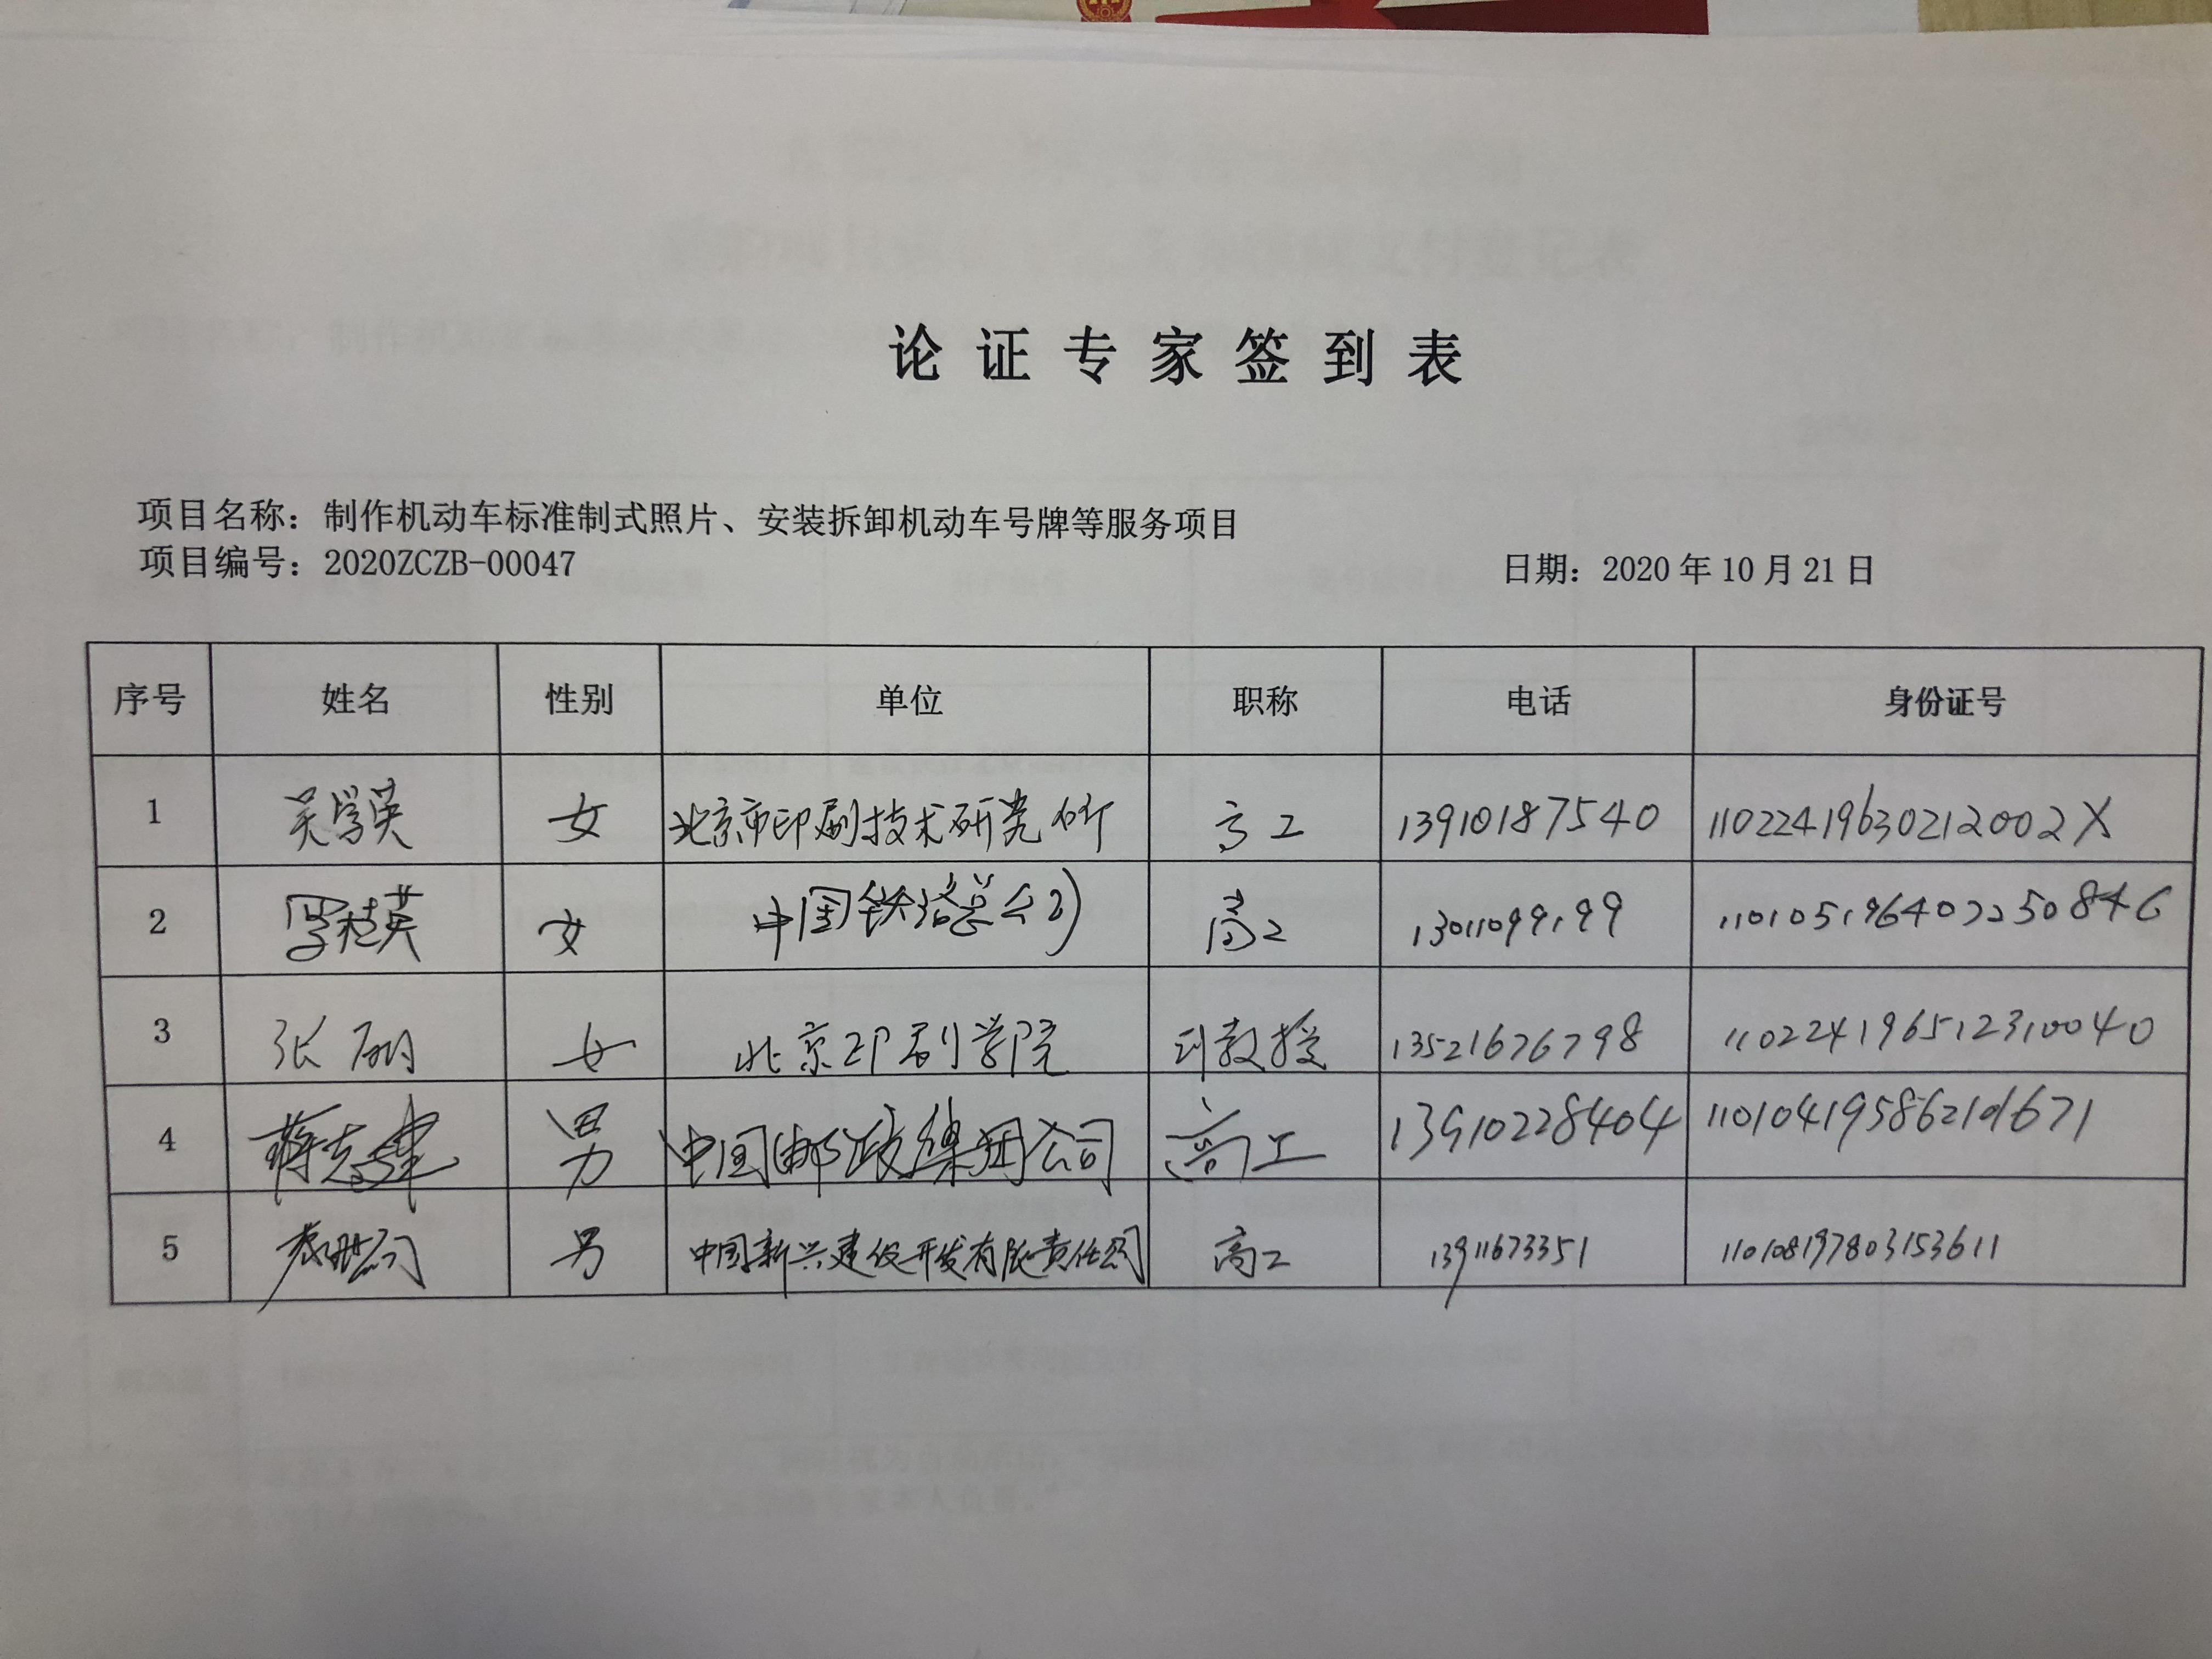 论证专家签到表
项目名称：制作机动车标准制式照片、安装拆卸机动车号牌等服务项目
项目编号：2020ZCZB-00047 日期：2020年10月21日
序号 姓名 性别 单位 职称 电话 身份证号
1 吴学英 女 北京市印刷技术研究所 高工 13910187540 11022419630212002X
2 女 中国铁路总公司 高工 13011099199
3 张丽 女 北京印刷学院 副教授 13521676798 110224196512310040
4 蒋志建 男 中国邮政集团公司 高工 13910228404
5 男 中国新兴建设开发有限责任公司 高工 13911673351 110108197803153611